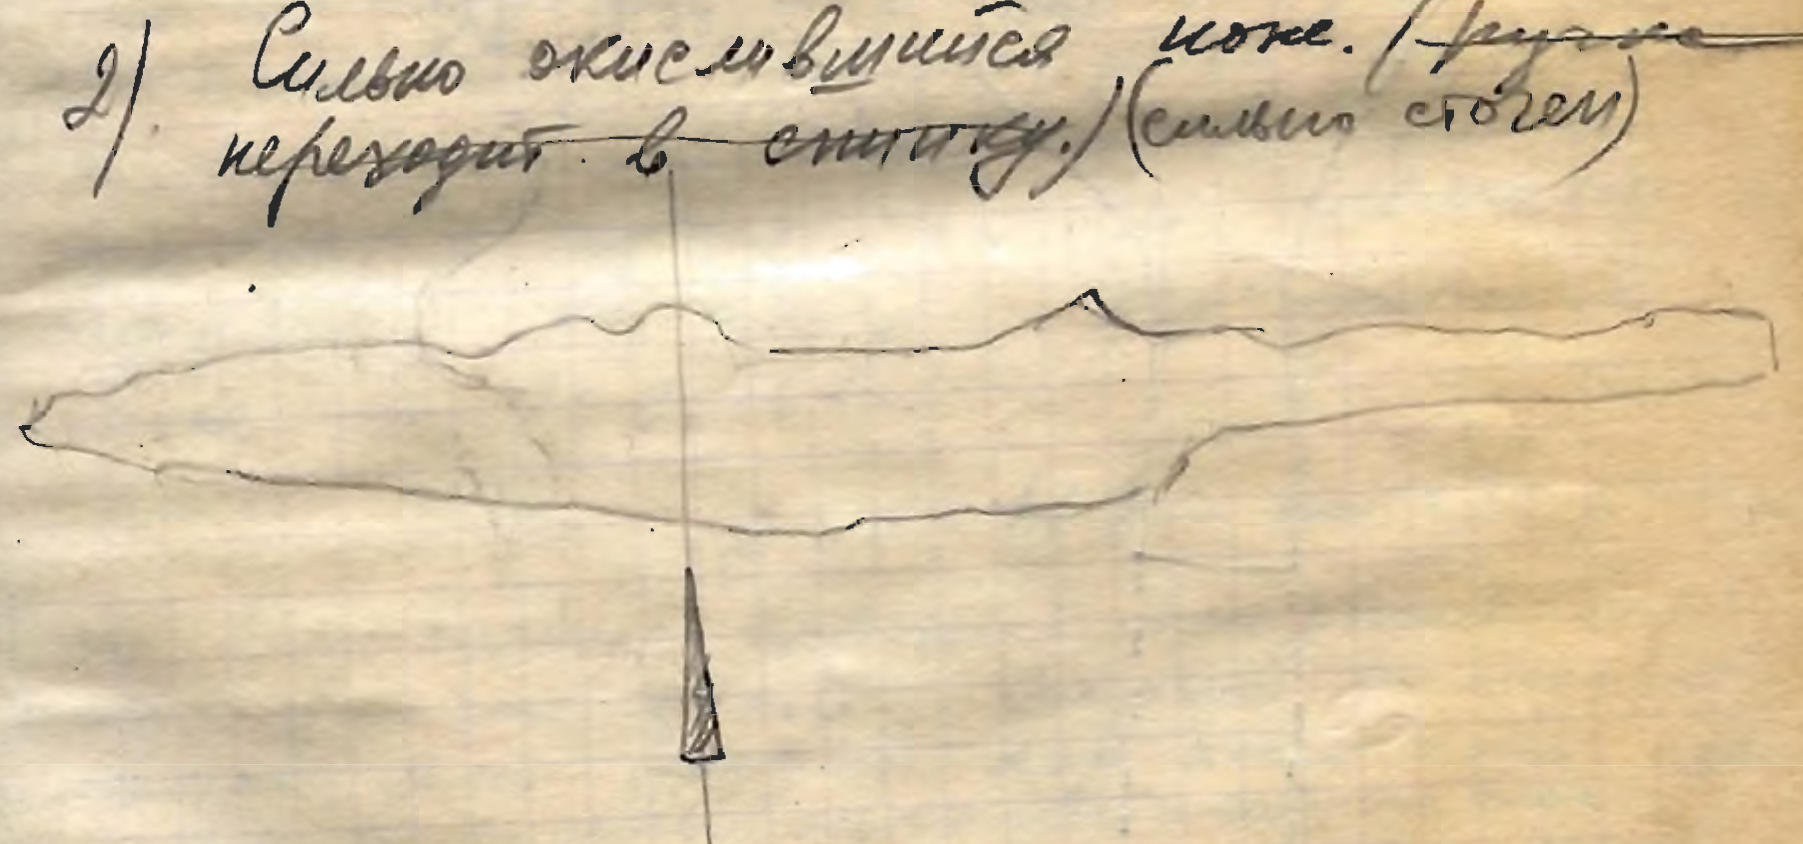 2) Сильно окислившийся нож. (ручка
переходит в спинку.) (сильно сточен)